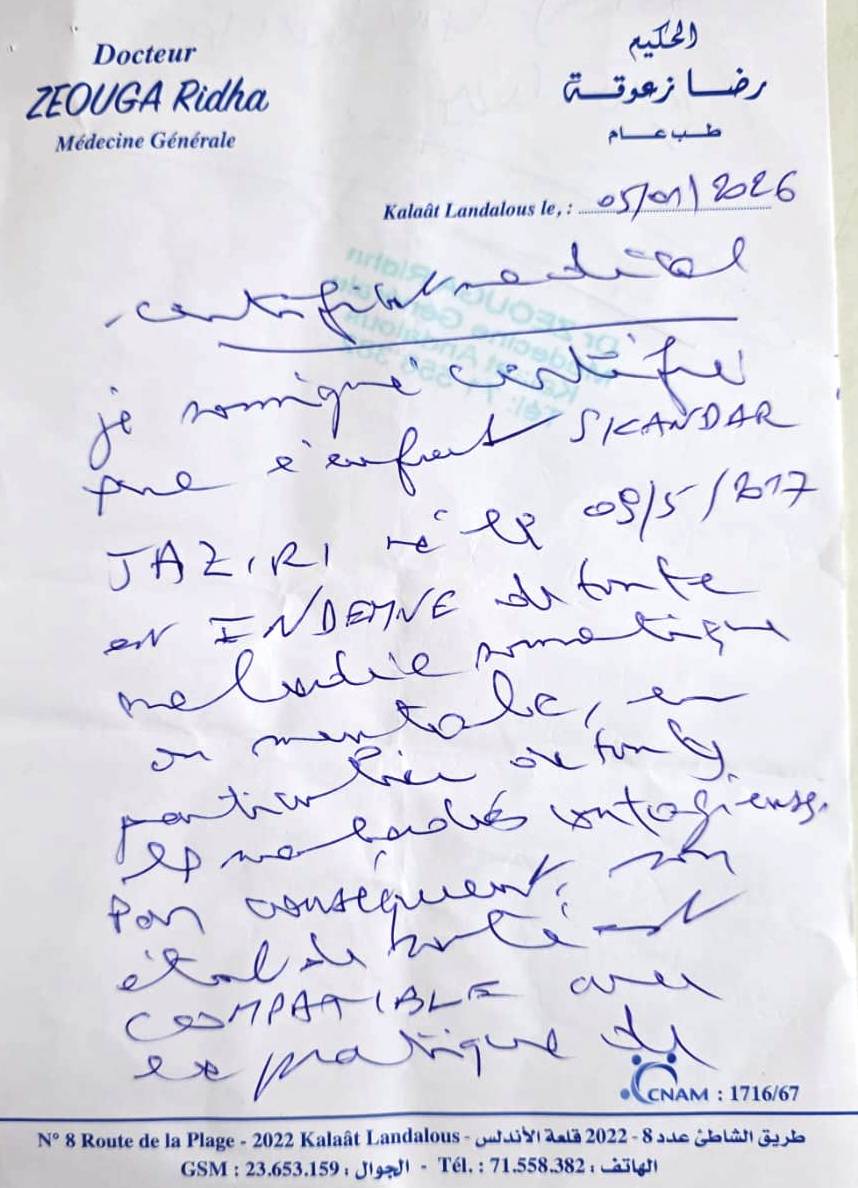 Docteur
ZEOUGA Ridha
Médecine Générale
الحكيم
رضا زعوقة
طب عام
Kalaât Landalous le, : 05/01/2026
certificat medical
je soussigné certifie
que l'enfant SKANDAR
JAZIRI né le 09/5/2017
est INDEMNE de toute
maladie somatique
ou mentale, en
particulier de toutes
les maladies contagieuses.
Par conséquent, son
état de santé est
COMPATIBLE avec
la pratique du
CNAM : 1716/67
N° 8 Route de la Plage - 2022 Kalaât Landalous - طريق الشاطئ عدد 8 - 2022 قلعة الأندلس
GSM : 23.653.159 : الجوال - Tél. : 71.558.382 : الهاتف